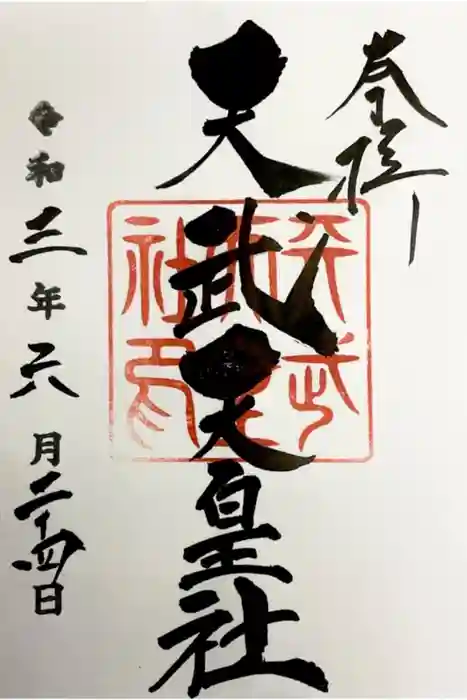 奉拝
天武天皇社
令和三年六月二十四日